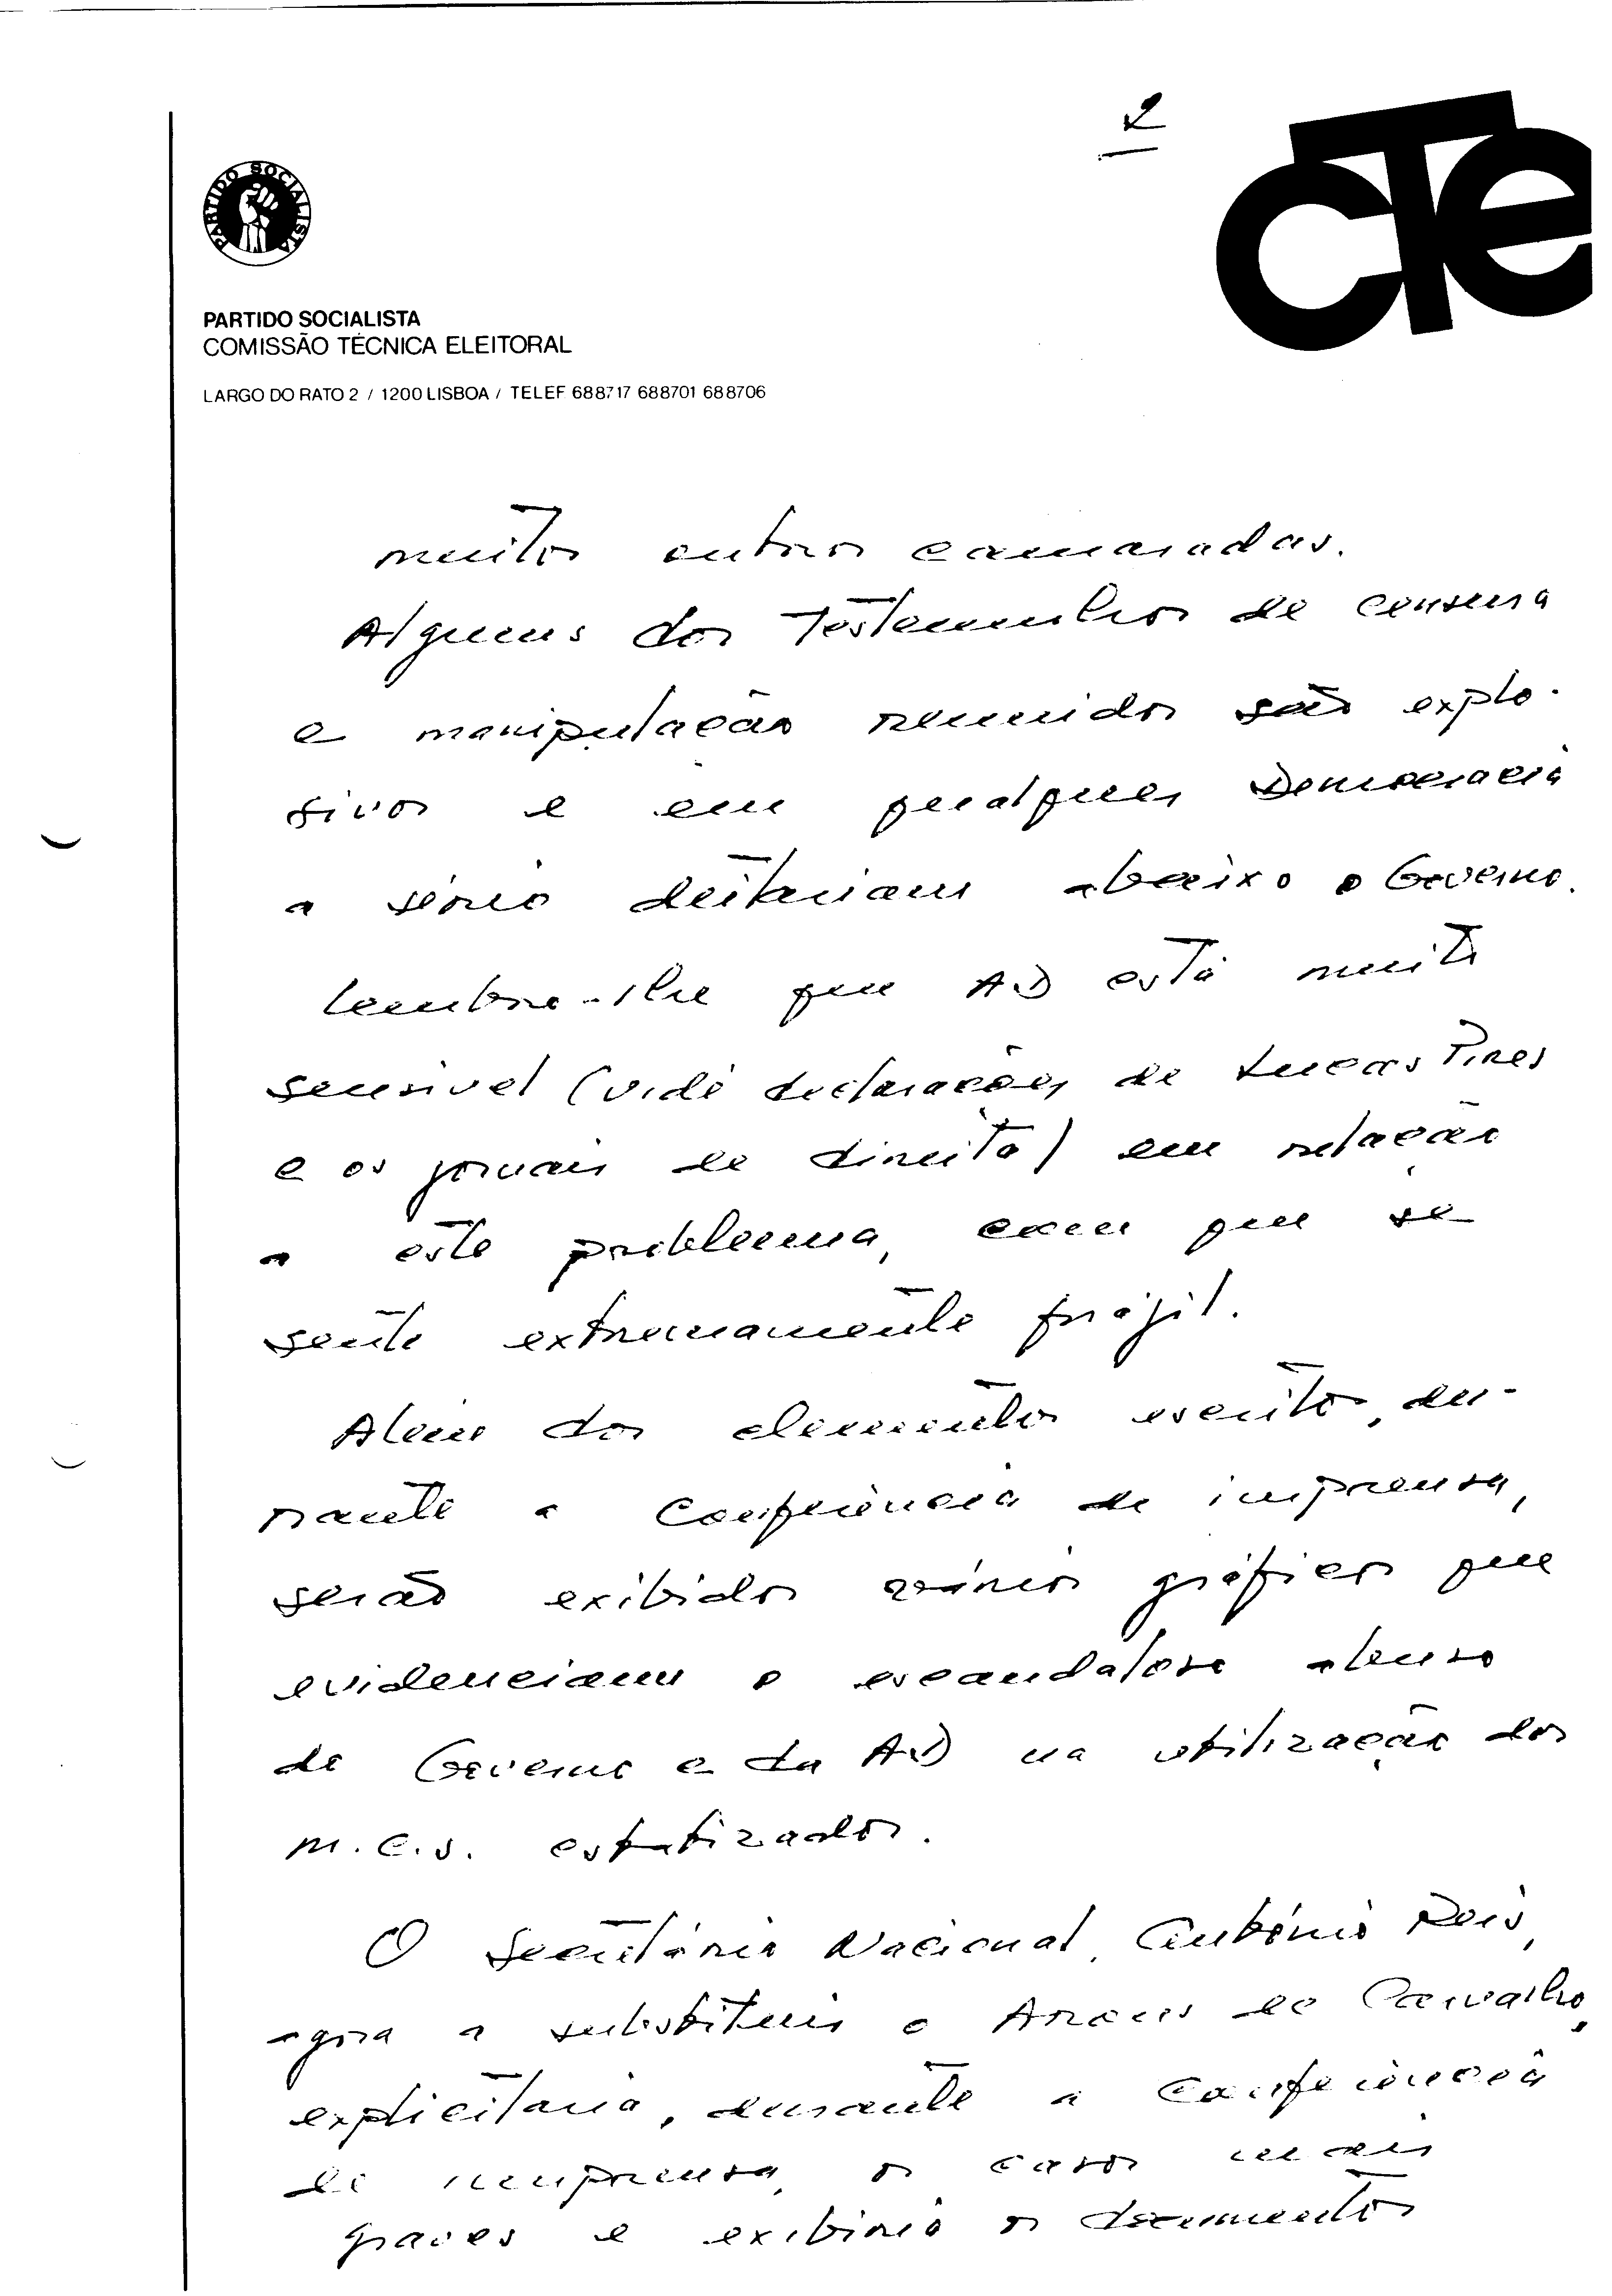 2
CTe
PARTIDO SOCIALISTA
PARTIDO SOCIALISTA
COMISSÃO TÉCNICA ELEITORAL
LARGO DO RATO 2 / 1200 LISBOA / TELEF. 688717 688701 688706
muitos outros camaradas.
Alguns dos testemunhos de censura
e manipulação reunidos são explo-
sivos e em qualquer Democracia
a sério deitariam abaixo o Governo.
Lembro-lhe que AD está muito
sensível (vide declarações de Lucas Pires
e os jornais de direita) em relação
a este problema, em que se
sente extremamente frágil.
Além dos elementos escritos, du-
rante a Conferência de imprensa,
serão exibidos vários gráficos que
evidenciam o escandaloso abuso
do Governo e da AD na utilização dos
m.c.s. estatizados.
O Secretário Nacional, António Reis,
agora a substituir o Arons de Carvalho,
explicitaria, durante a Conferência
de imprensa, os casos mais
graves e exibiria os documentos